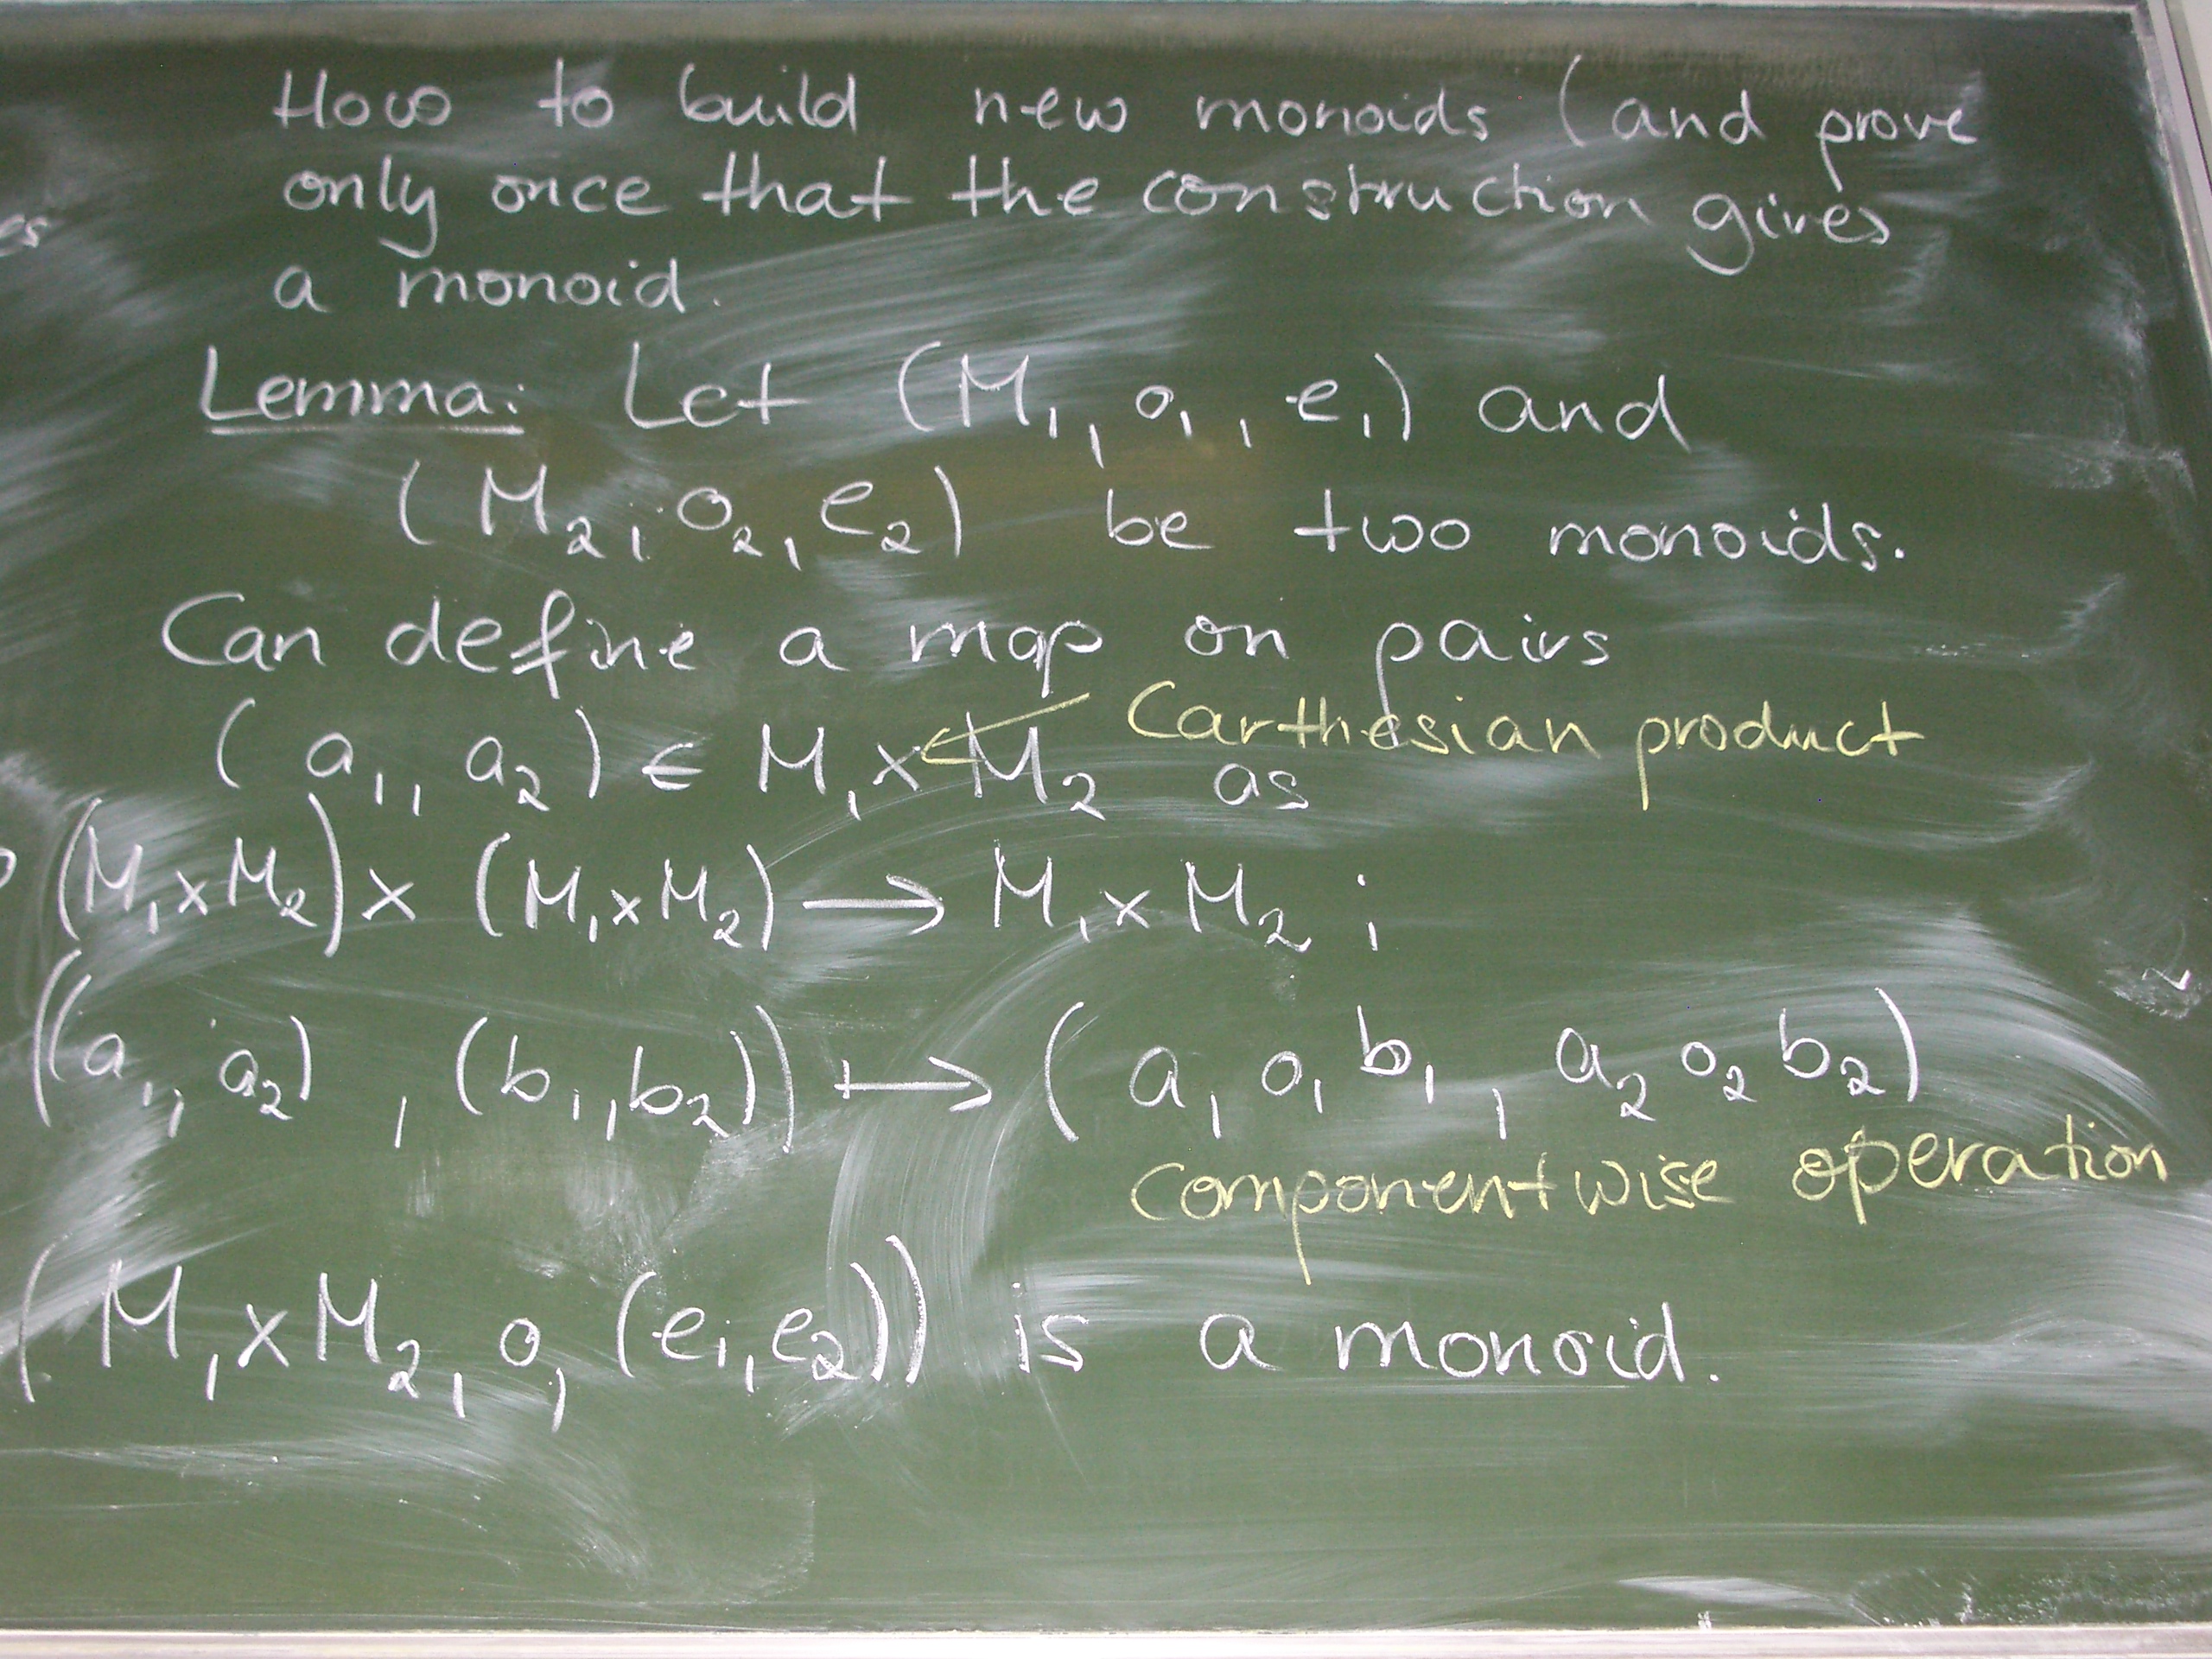 How to build new monoids (and prove
only once that the construction gives
a monoid.
Lemma: Let (M₁, o₁, e₁) and
(M₂, o₂, e₂) be two monoids.
Can define a map on pairs
Carthesian product
(a₁, a₂) ∈ M₁ × M₂ as
(M₁×M₂) × (M₁×M₂) → M₁×M₂ ;
((a₁, a₂), (b₁, b₂)) ↦ (a₁ o₁ b₁, a₂ o₂ b₂)
componentwise operation
(M₁×M₂, o, (e₁, e₂)) is a monoid.